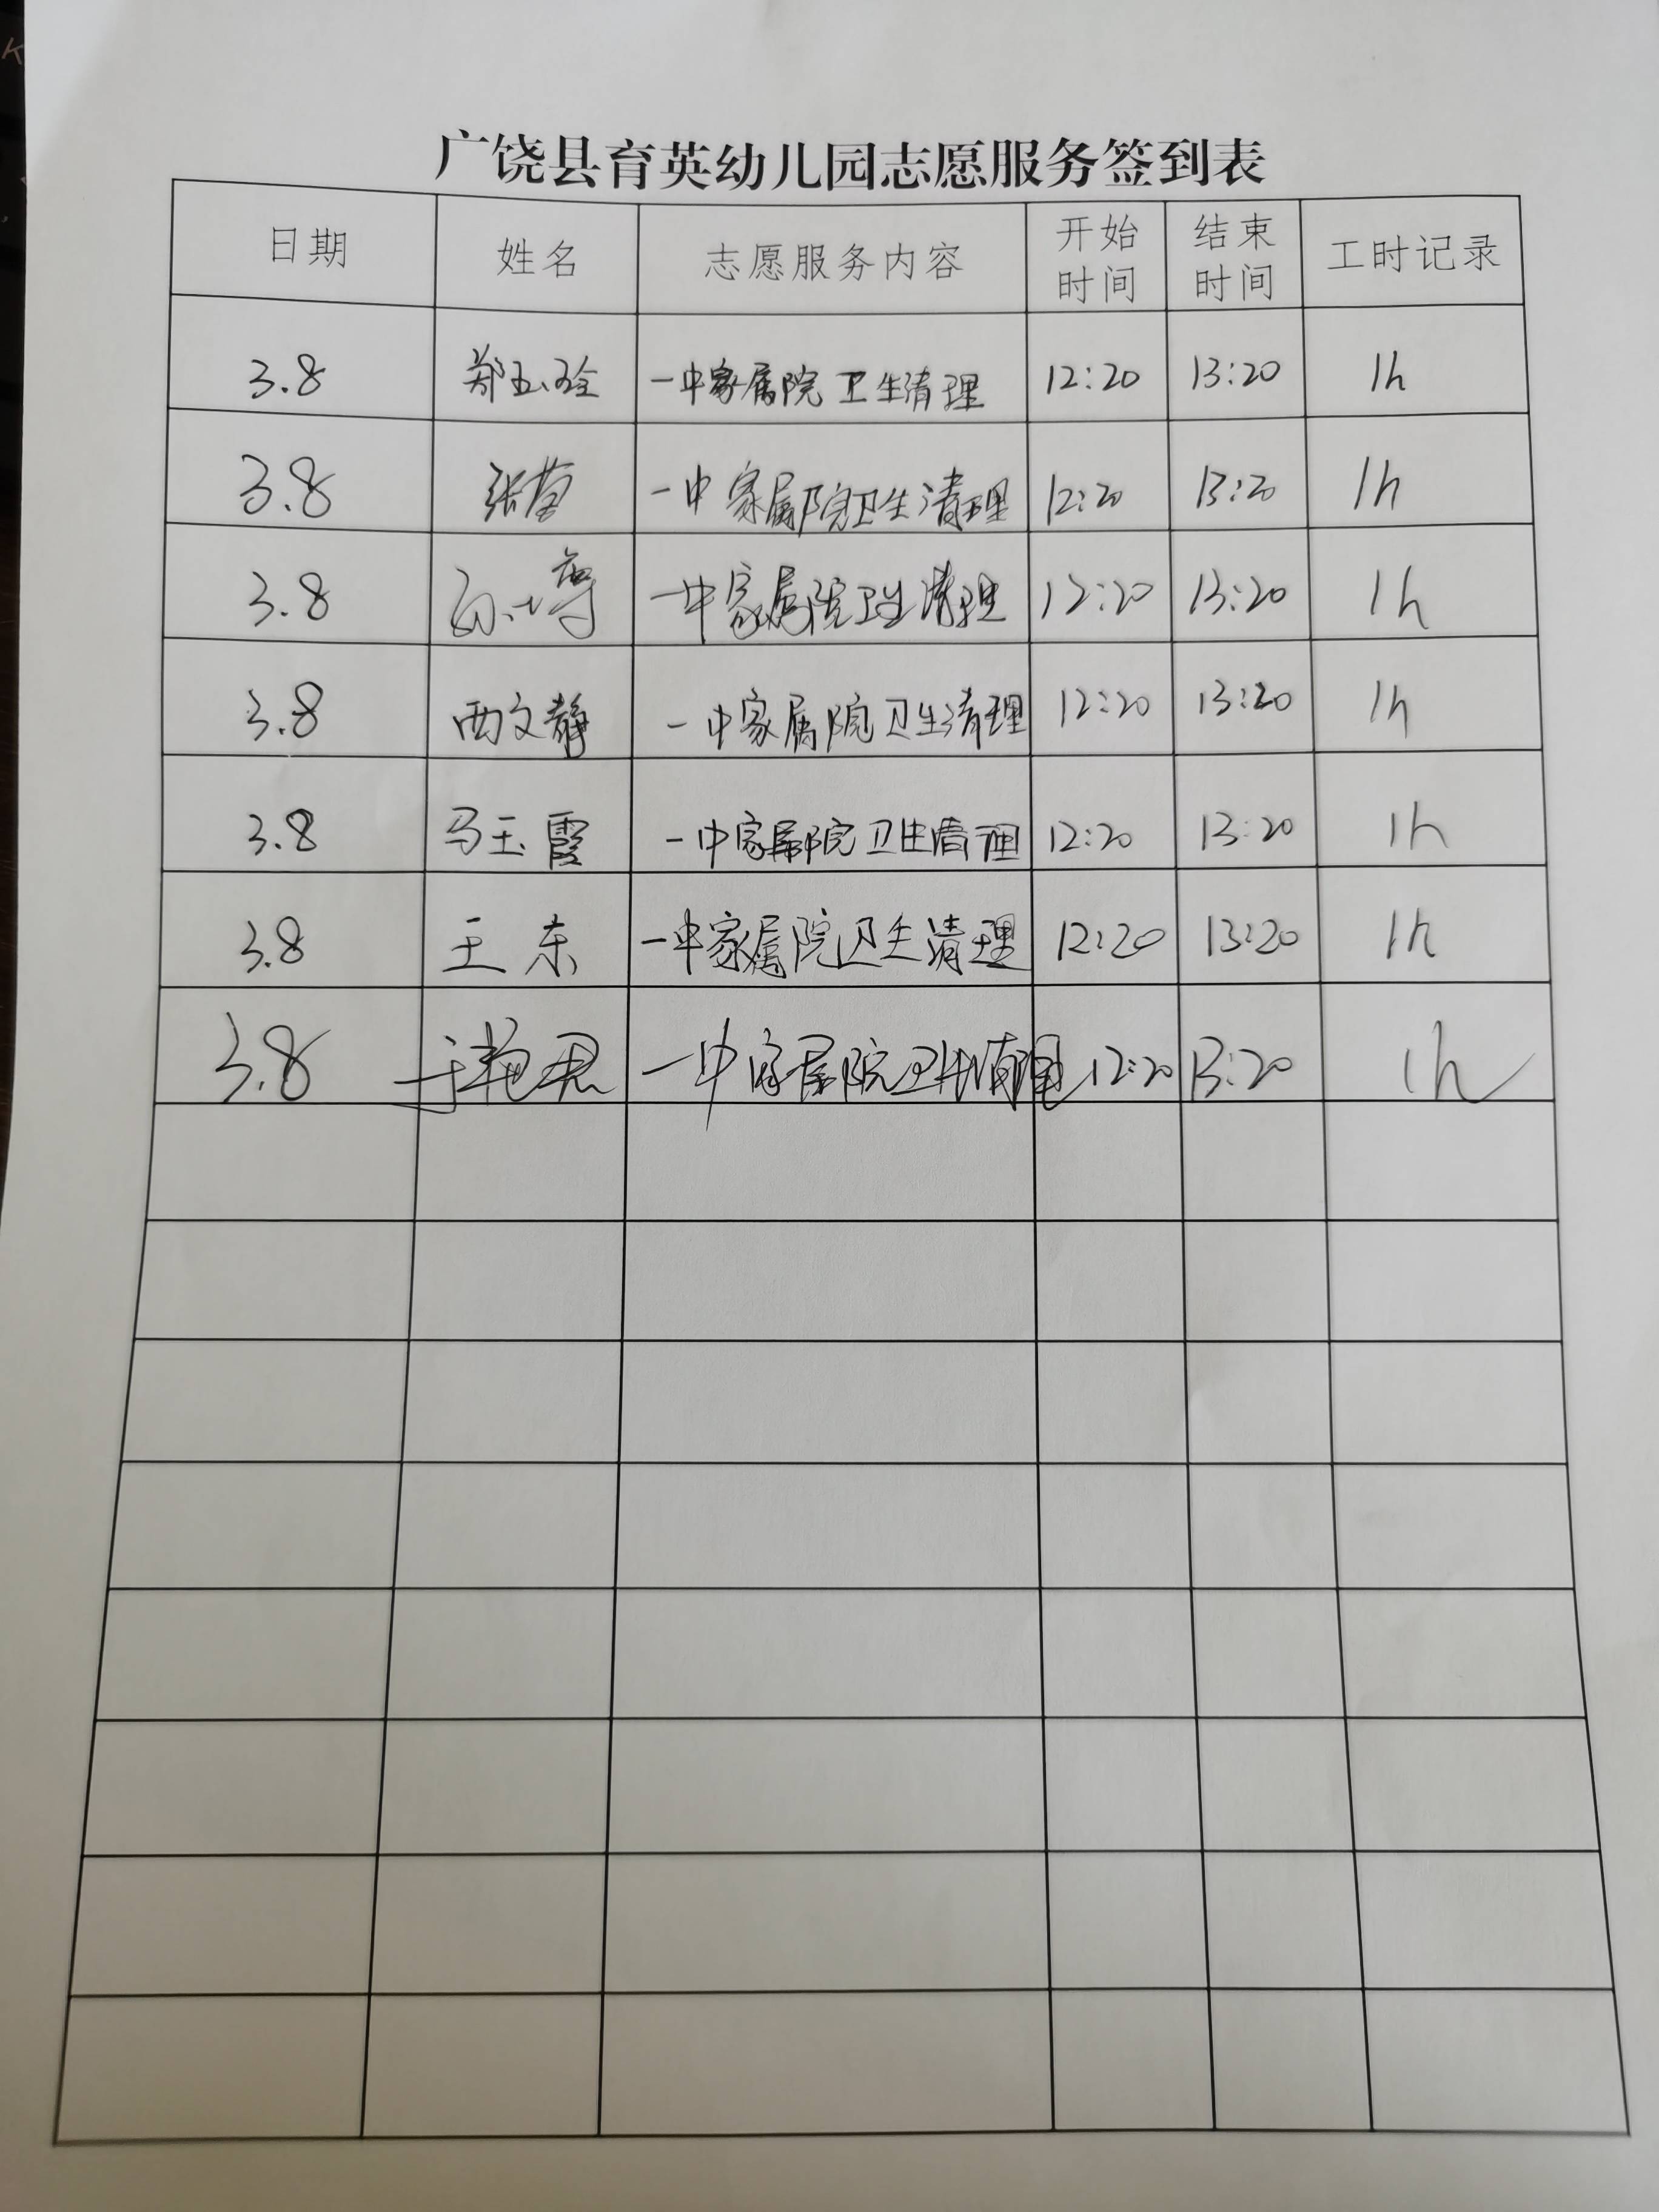 广饶县育英幼儿园志愿服务签到表
日期 姓名 志愿服务内容 开始时间 结束时间 工时记录
3.8 郑玉玲 一中家属院卫生清理 12:20 13:20 1h
3.8 张莹 一中家属院卫生清理 12:20 13:20 1h
3.8 一中家属院卫生清理 12:20 13:20 1h
3.8 西文静 一中家属院卫生清理 12:20 13:20 1h
3.8 马玉霞 一中家属院卫生清理 12:20 13:20 1h
3.8 王东 一中家属院卫生清理 12:20 13:20 1h
3.8 于艳君 一中家属院卫生清理 12:20 13:20 1h